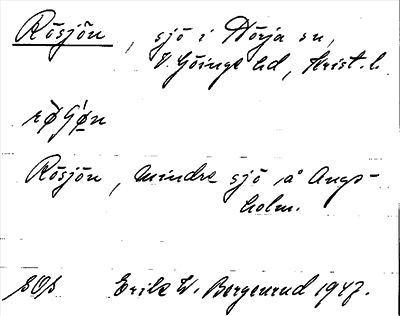 Rösjön, sjö i Nörja sn,
V. Göinge hd, Krist. l.
Rösjön, mindre sjö å Ängs-
holm.
SOS Erik W. Bergenrud 1947.